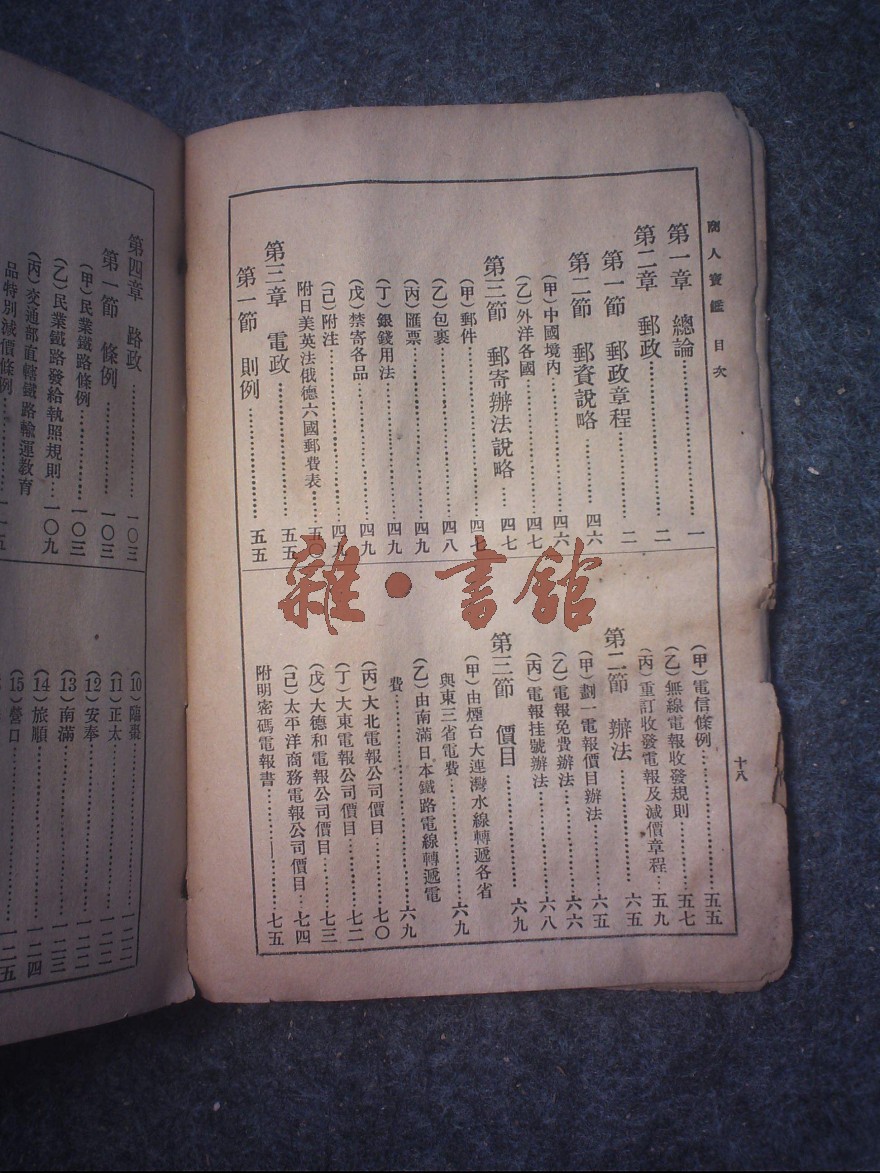 商人寶鑑 目次
十八
第一章 總論……一
第二章 郵政……二
第一節 郵政章程……二
第二節 郵資說略……四六
(甲)中國境內……四六
(乙)外洋各國……四七
第三節 郵寄辦法說略……四七
(甲)郵件……四七
(乙)包裹……四八
(丙)匯票……四九
(丁)銀錢用法……四九
(戊)禁寄各品……四九
(己)附注……四九
附日美英法俄德六國郵費表……五〇
第三章 電政……五五
第一節 則例……五五
(甲)電信條例……五五
(乙)無線電報收發規則……五七
(丙)重訂收發電報及減價章程……五九
第二節 辦法……六五
(甲)劃一電報價目辦法……六五
(乙)電報免費辦法……六六
(丙)電報挂號辦法……六八
第三節 價目……六九
(甲)由煙台大連灣水線轉遞各省
與東三省電費……六九
(乙)由南滿日本鐵路電線轉遞電
費……六九
(丙)大北電報公司價目……七〇
(丁)大東電報公司價目……七二
(戊)大德和電報公司價目……七三
(己)太平洋商務電報公司價目……七四
附明密碼電報書……七五
第四章 路政……一〇三
第一節 條例……一〇三
(甲)民業鐵路條例……一〇三
(乙)民業鐵路發給執照規則……一〇九
(丙)交通部直轄鐵路輸運教育
品特別減價條例……一一五
(10)臨棗……一二一
(11)正太……一二二
(12)安奉……一二二
(13)南滿……一二三
(14)旅順……一二四
(15)營口……一二五
雜·書館